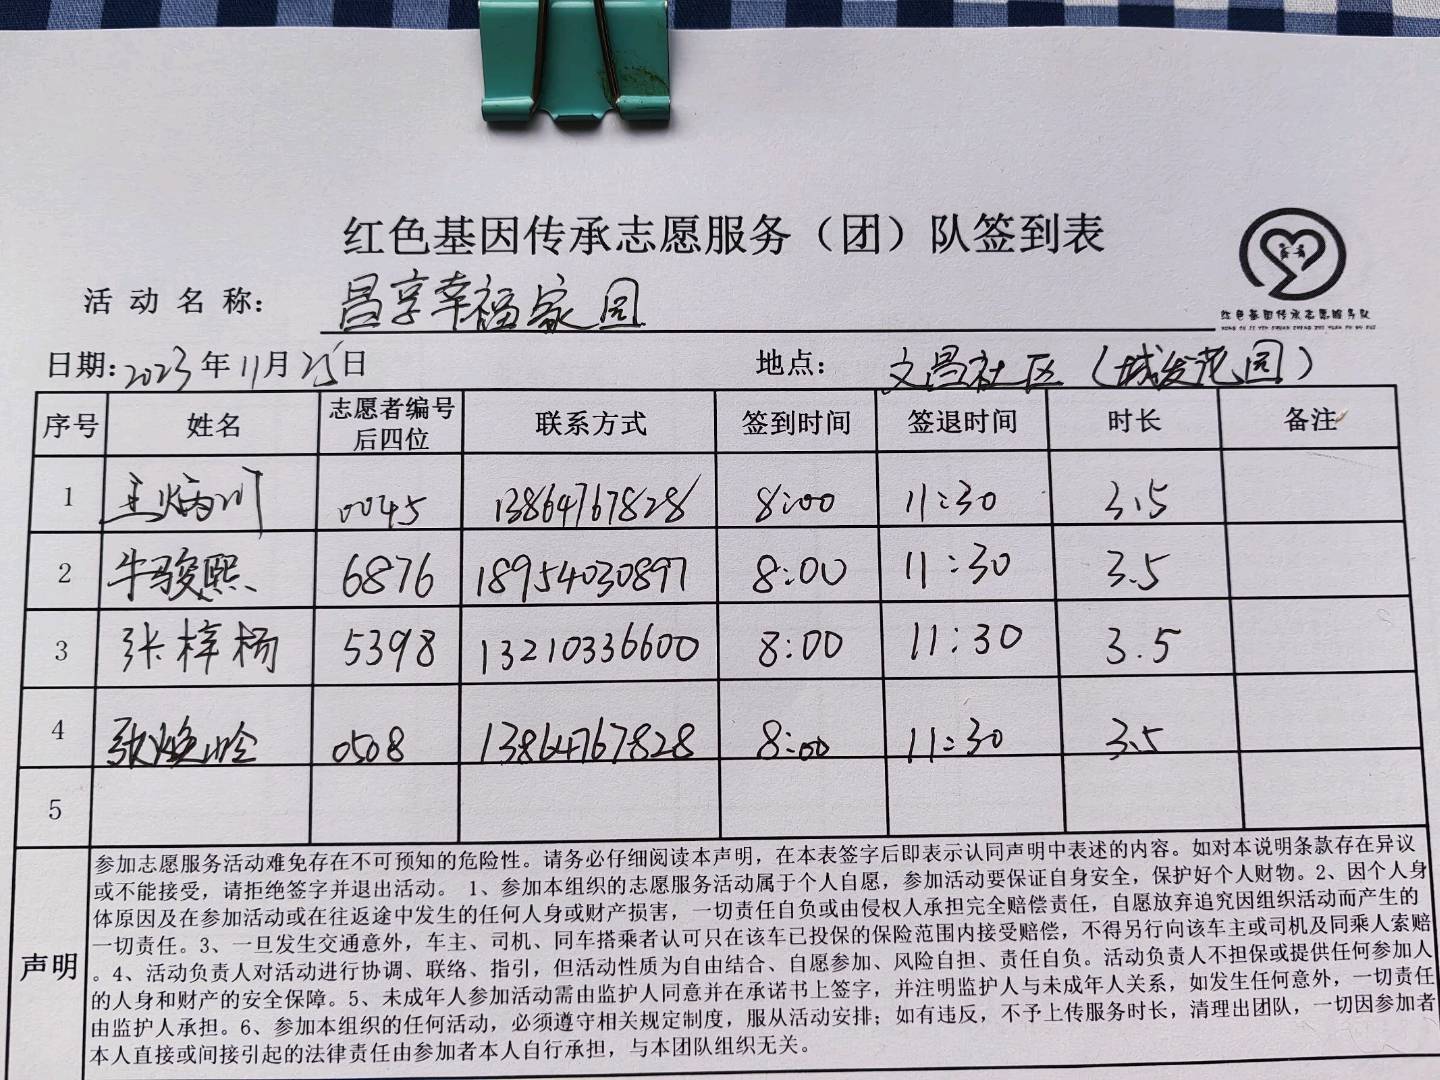 红色基因传承志愿服务（团）队签到表
红色基因传承志愿服务队
活动名称： 昌享幸福家园
日期：2023年11月25日 地点： 文昌社区（城发花园）
序号 姓名 志愿者编号后四位 联系方式 签到时间 签退时间 时长 备注
1 王炳川 0045 13864767828 8:00 11:30 3.5
2 牛骏熙 6876 18954030897 8:00 11:30 3.5
3 张梓杨 5398 13210336600 8:00 11:30 3.5
4 张焕岭 0508 13864767828 8:00 11:30 3.5
5
声明
参加志愿服务活动难免存在不可预知的危险性。请务必仔细阅读本声明，在本表签字后即表示认同声明中表述的内容。如对本说明条款存在异议
或不能接受，请拒绝签字并退出活动。 1、参加本组织的志愿服务活动属于个人自愿，参加活动要保证自身安全，保护好个人财物。2、因个人身
体原因及在参加活动或在往返途中发生的任何人身或财产损害，一切责任自负或由侵权人承担完全赔偿责任，自愿放弃追究因组织活动而产生的
一切责任。3、一旦发生交通意外，车主、司机、同车搭乘者认可只在该车已投保的保险范围内接受赔偿，不得另行向该车主或司机及同乘人索赔
。4、活动负责人对活动进行协调、联络、指引，但活动性质为自由结合、自愿参加、风险自担、责任自负。活动负责人不担保或提供任何参加人
的人身和财产的安全保障。5、未成年人参加活动需由监护人同意并在承诺书上签字，并注明监护人与未成年人关系，如发生任何意外，一切责任
由监护人承担。6、参加本组织的任何活动，必须遵守相关规定制度，服从活动安排；如有违反，不予上传服务时长，清理出团队，一切因参加者
本人直接或间接引起的法律责任由参加者本人自行承担，与本团队组织无关。